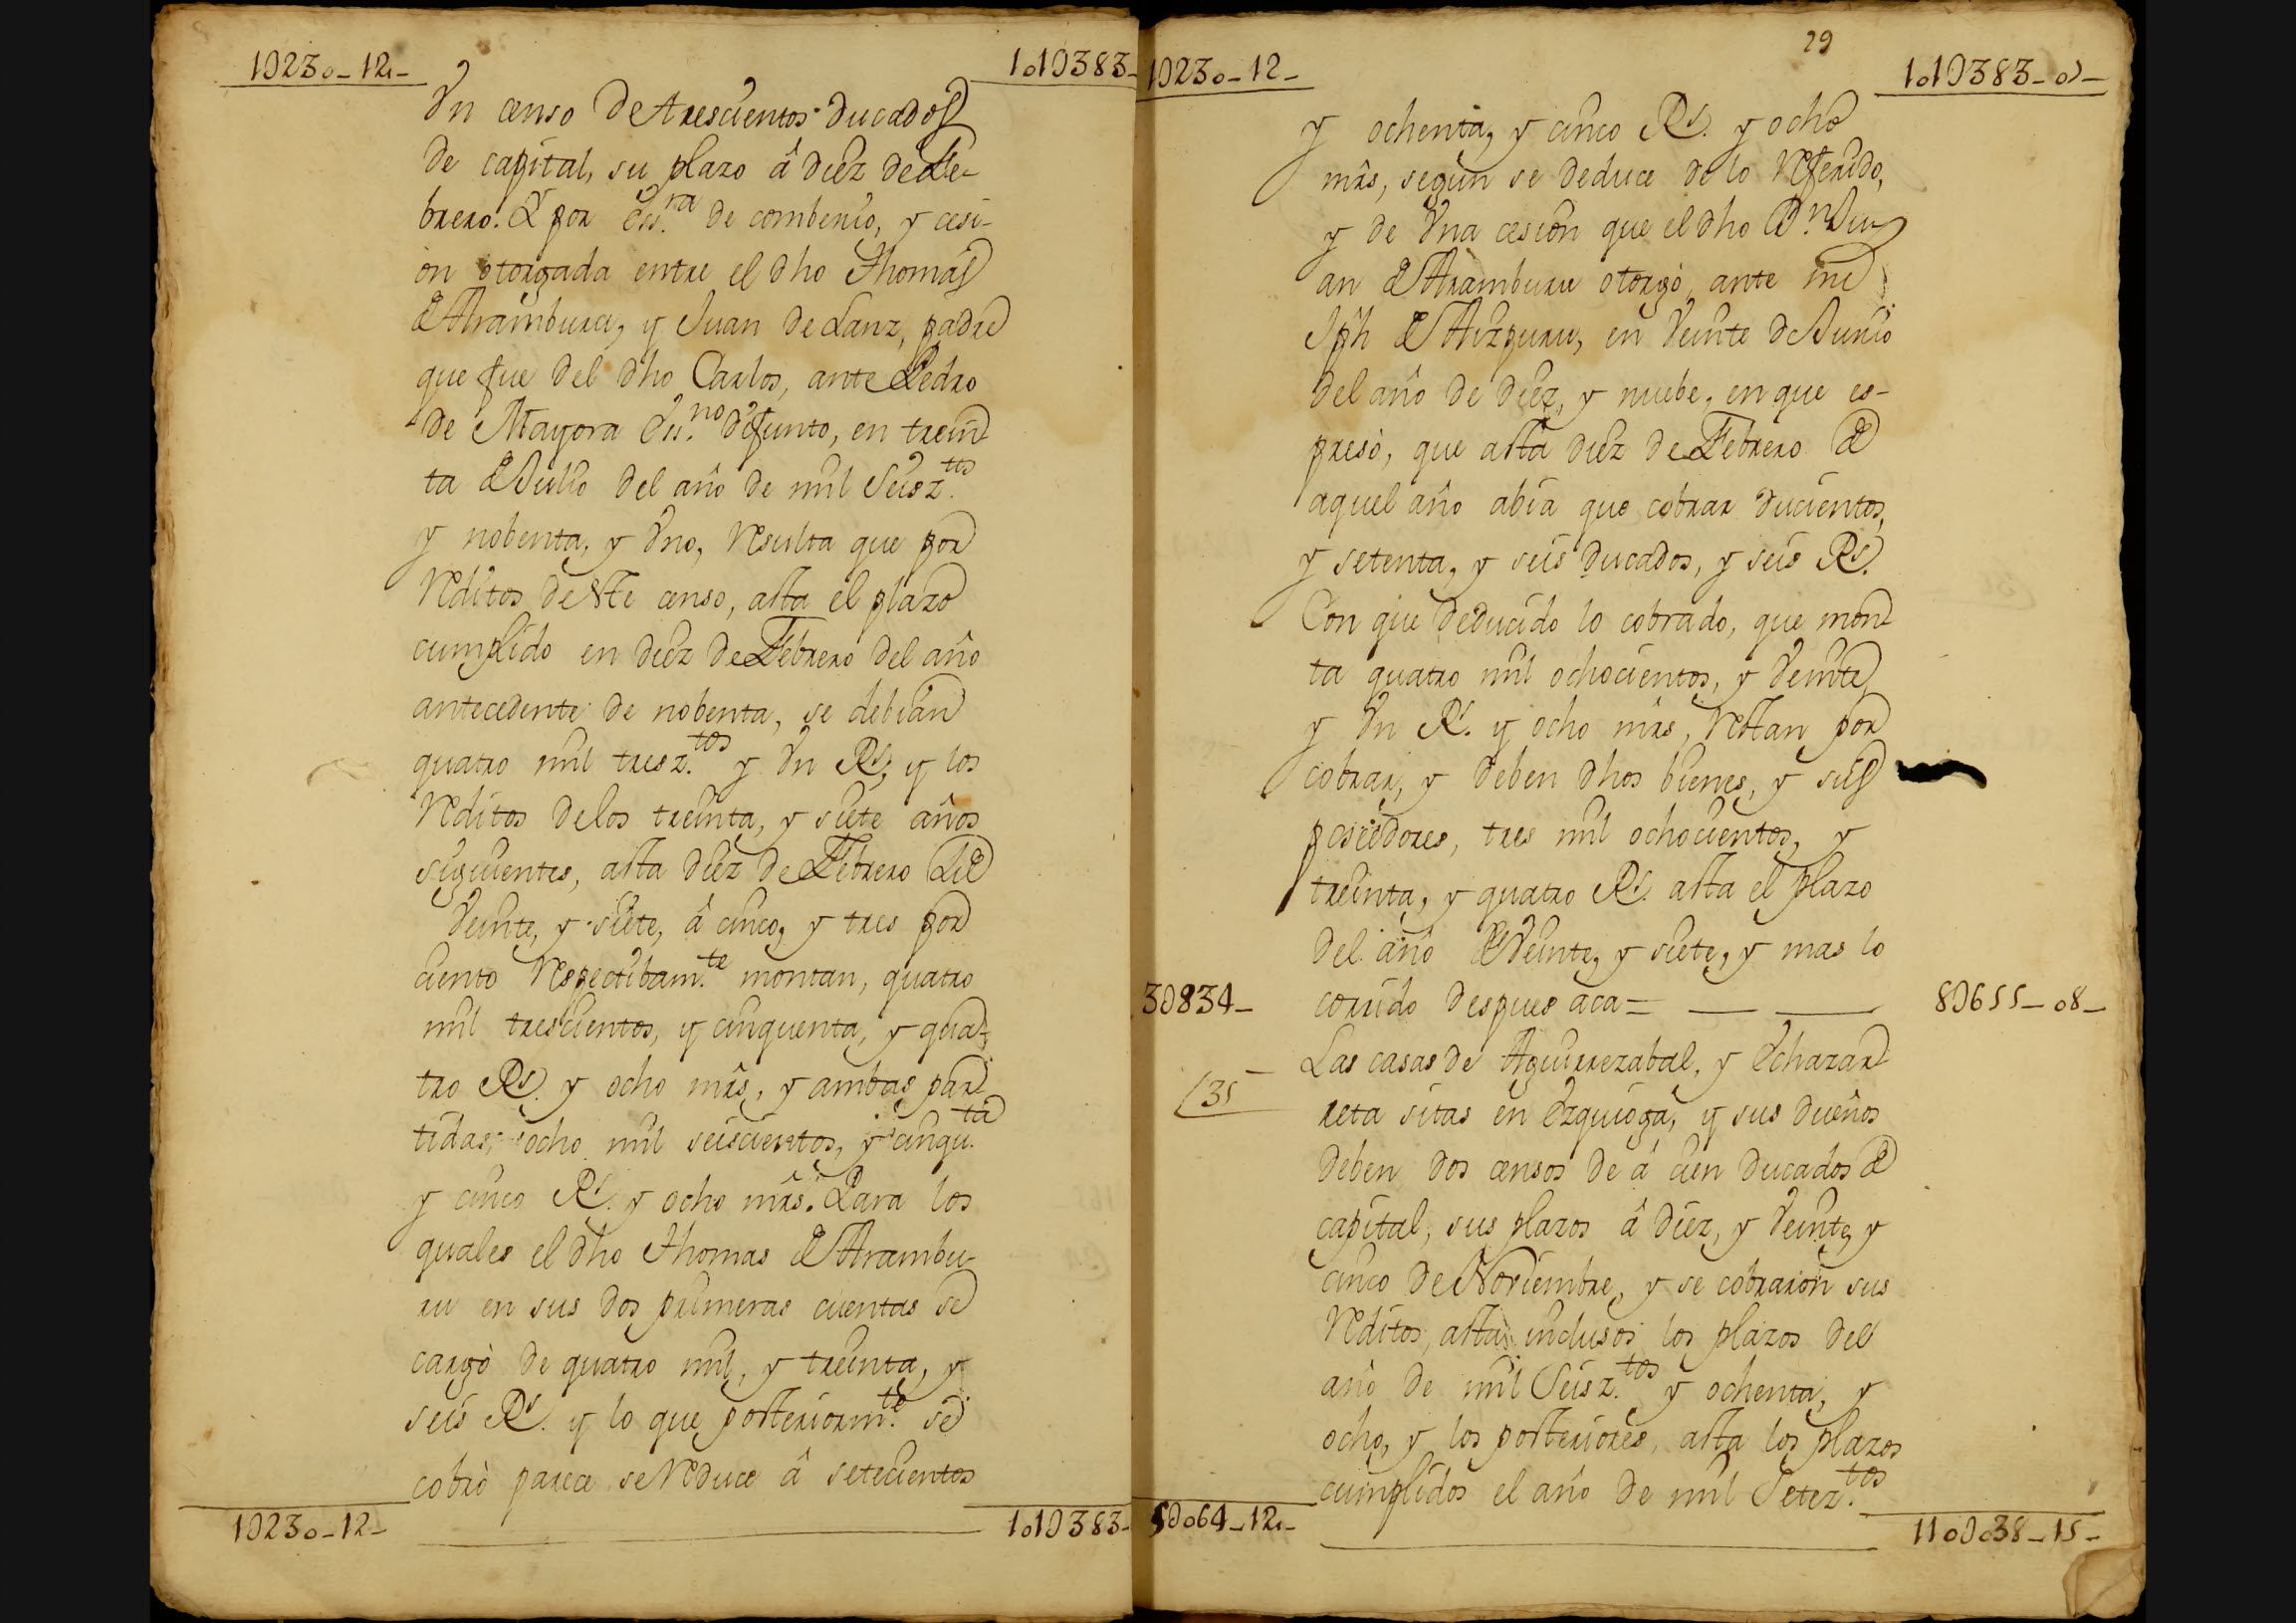 1U230-12-
101U383-
Vn censo de trescientos ducados
de capital, su plazo â diez de Fe-
brero. Y por Ess.ra de combenio, y cesi-
on otorgada entre el dho Thomas
de Aramburu, y Juan de Lanz, padre
que fue del dho Carlos, ante Pedro
de Mayora Ess.no difunto, en trein-
ta de Julio del año de mil Seisz.tos
y nobenta, y Vno, Resulta que por
Reditos de este censo, asta el plazo
cumplido en diez de Febrero del año
antecedente de nobenta, se debian
quatro mil tresz.tos y Vn Rs, y los
Reditos delos treinta, y siete años
siguientes, asta diez de Febrero de
Veinte, y siete, â cinco, y tres por
ciento Respectibam.te montan, quatro
mil trescientos, y cinquenta, y qua-
tro Rs. y ocho mrs, y ambas par-
tidas, ocho mil seiscientos, y cinqu.ta
y cinco Rs. y ocho mrs. Para los
quales el dho Thomas de Arambu-
ru en sus dos primeras cuentas se
cargò de quatro mil, y treinta, y
seis Rs. y lo que posteriorm.te se
cobrò parece se Reduce â setecientos
1U230-12-
101U383-
29
1U230-12-
101U383-07-
y ochenta, y cinco Rs. y ocho
mrs, segun se deduce de lo Referido,
y de Vna cesion que el dho Dn. Ju-
an de Aramburu otorgò, ante mi
Jph de Aizpuru, en Veinte de Junio
del año de diez, y nuebe, en que es-
presò, que asta diez de Febrero de
aquel año abia que cobrar ducientos,
y setenta, y seis ducados, y seis Rs.
Con que deducido lo cobrado, que mon-
ta quatro mil ochocientos, y Veinte
y Vn R. y ocho mrs, Restan por
cobrar, y deben dhos bienes, y sus
poseedores, tres mil ochocientos, y
treinta, y quatro Rs. asta el plazo
del año de Veinte, y siete, y mas lo
3U834-
corrido despues aca=
8U655-08-
35
Las casas de Aguirrezabal, y Echazar-
reta sitas en Ezquioga, y sus dueños
deben dos censos de â cien ducados de
capital, sus plazos â diez, y Veinte, y
cinco de Noviembre, y se cobraron sus
Reditos, asta inclusos los plazos del
año de mil Seisz.tos y ochenta, y
ocho, y los posteriores, asta los plazos
cumplidos el año de mil Setez.tos
5U064-12-
110U038-15-